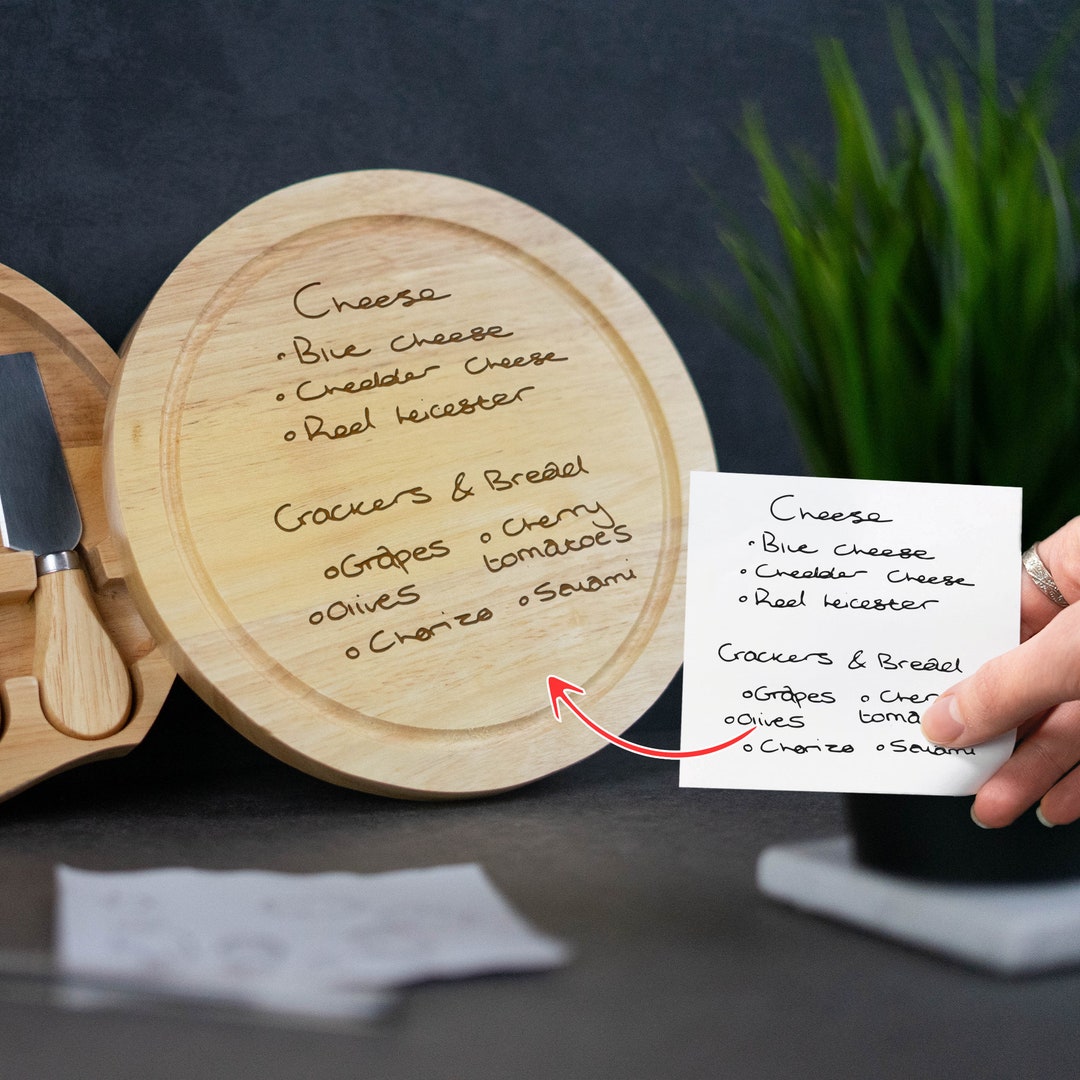 Cheese
• Blue cheese
• Cheddar Cheese
• Red Leicester
Crackers & Bread
• Grapes • Cherry
tomatoes
• Olives
• Chorizo • Salami
Cheese
• Blue cheese
• Cheddar Cheese
• Red Leicester
Crackers & Bread
• Grapes • Cher
• Olives toma
• Chorizo • Salami